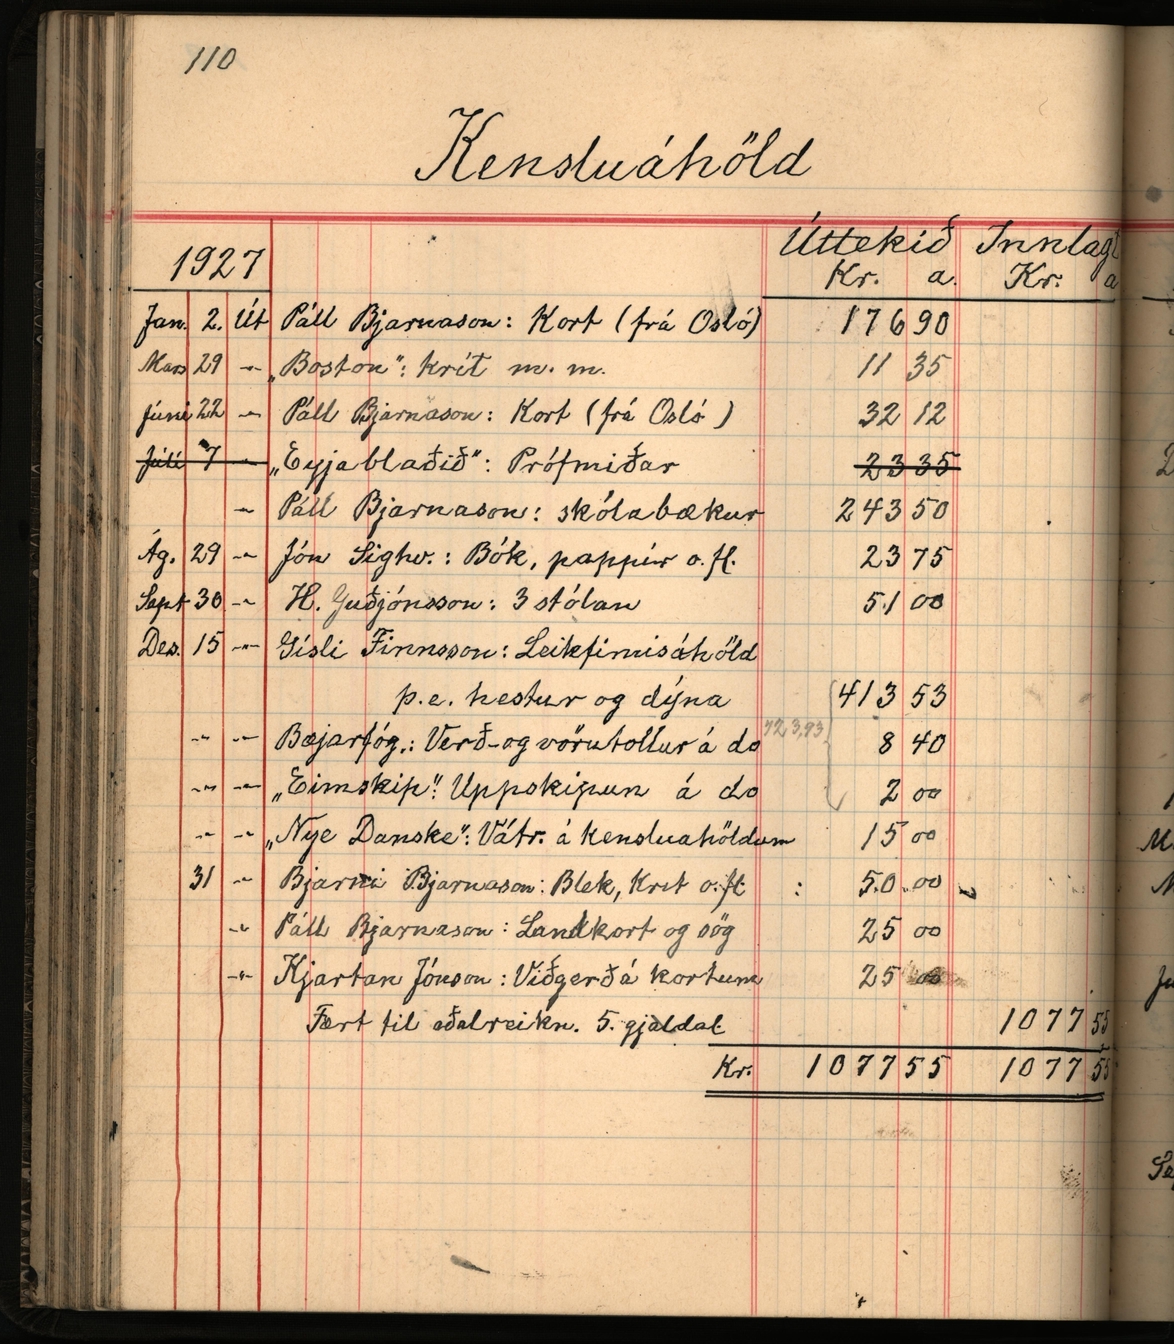 110
Kensluáhöld
1927 Úttekið Innlagt
Kr. a. Kr. a
Jan. 2. Út Páll Bjarnason: Kort (frá Osló) 176 90
Mars 29 -〃- „Boston": krít m. m. 11 35
Júní 22 -〃- Páll Bjarnason: Kort (frá Osló) 32 12
Júlí 7 -〃- „Eyjablaðið": Prófmiðar 23 35
-〃- Páll Bjarnason: skólabækur 243 50
Ág. 29 -〃- Jón Sighv.: Bók, pappír o.fl. 23 75
Sept 30 -〃- H. Guðjónsson: 3 stólar 51 00
Des. 15 -〃- Gísli Finnsson: Leikfimisáhöld
þ.e. hestur og dýna 413 53
-〃- -〃- Bæjarfóg.: Verð- og vörutollur á do 423,93 8 40
-〃- -〃- „Eimskip": Uppskipun á do 2 00
-〃- -〃- „Nye Danske": Vátr. á kensluahöldum 15 00
31 -〃- Bjarni Bjarnason: Blek, Krít o.fl : 50 00
-〃- Páll Bjarnason: Landkort og sög 25 00
-〃- Kjartan Jónson: Viðgerð á kortum 25 00
Fært til aðalreikn. 5. gjaldal. 1077 55
Kr. 1077 55 1077 55